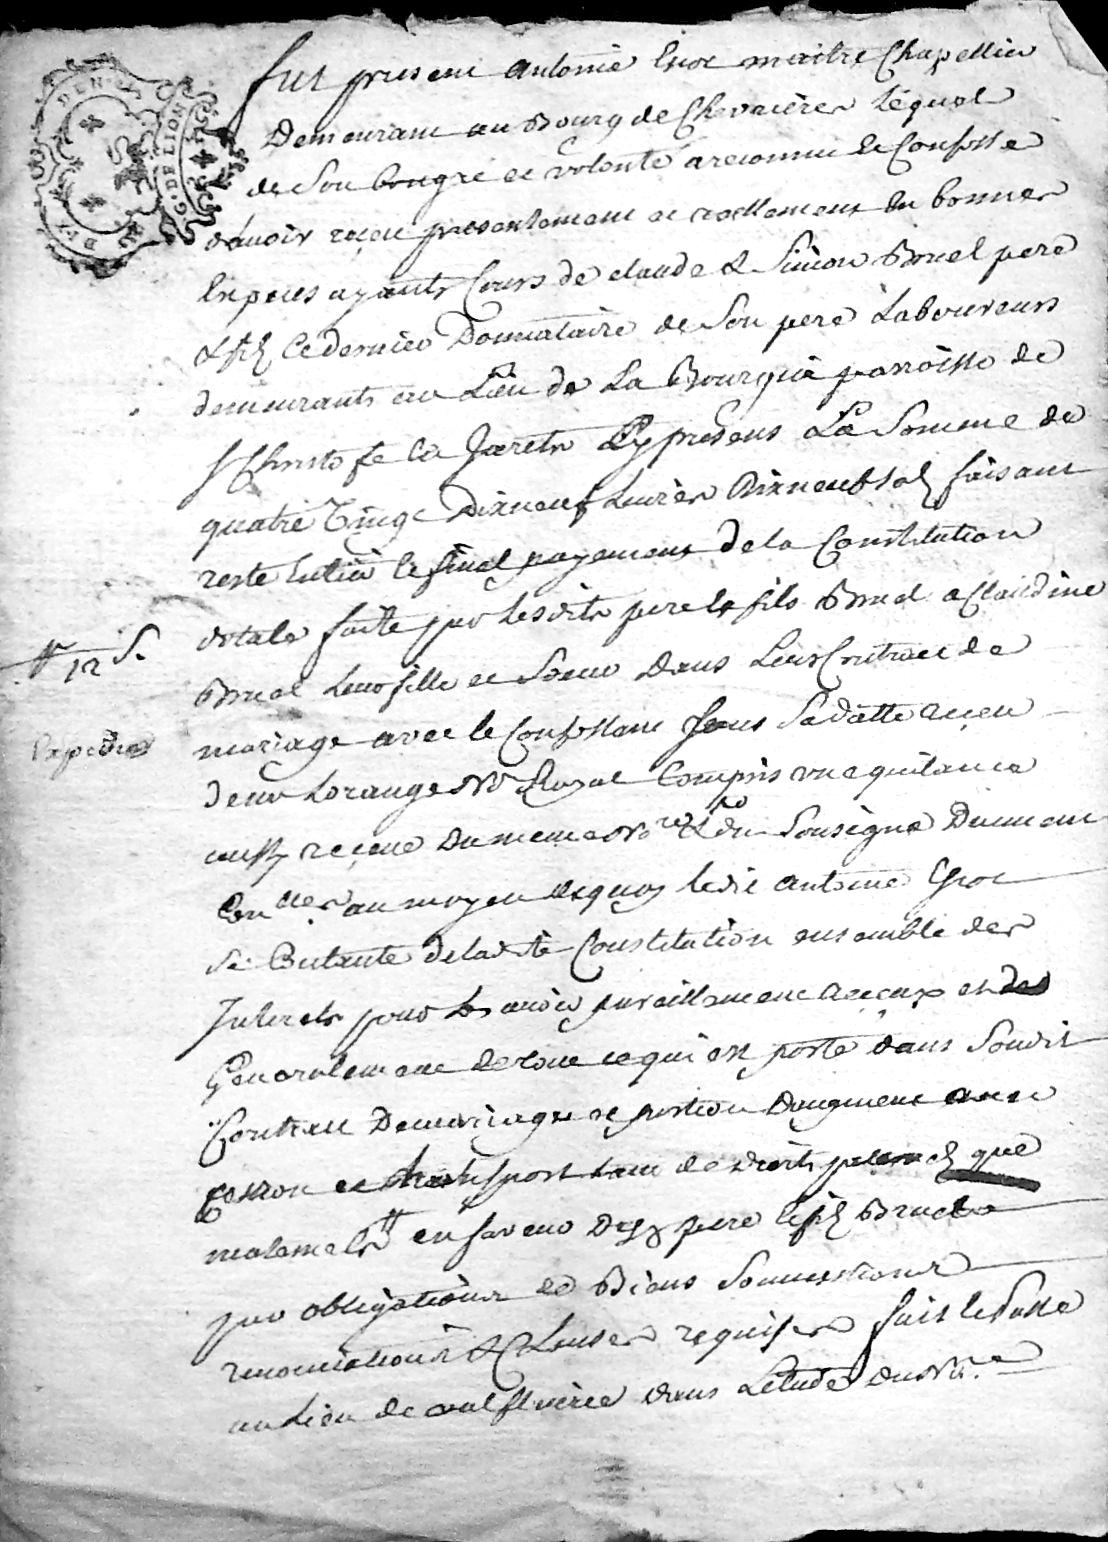 DEN
G. DE LION
fut present Antoine maitre Chapellier
Demeurant au Bourg de Chevrieres lequel
de Son bongré et volonté a reconnu et Confesse
d'avoir reçeu presentement et reellement en bonnes
Espeçes ayants Cours de claude & Simon Bruel pere
& fils Ce dernier Donnataire de Son pere Laboureurs
demeurants au Lieu de La Bourgia parroisse de
St Christofe en Jarets Cy presens La Somme de
quatre Vingt Dixneuf Livres Dixneuf sols faisant
reste Entier et final payement de la Constitution
dotale faite par lesdits pere et fils Bruel a Claudine
12 S.
Bruel leur fille et Soeur Dans Leur Contract de
mariage avec le Confessant Sous Sa datte reçeu
Expedié
Devant Lorange Nre Royal Compris une quitance
aussy reçeue Du meme Nore & du Sousigné Dument
au moyen dequoy ledit Antoine
Se Contente de ladite Constitution ensemble des
Interets pour les avoir pareillement reçeus et
Generalement de tout ce qui est porté dans Soudit
Contract De mariage et portion Daugment avec
Cession et transport de droits paternels que
maternels en faveur Desd pere et fils Bruel
par obligations de Biens Soumissions
renonciations & Clauses requises fait et Passé
au Lieu de dans Letude du Nre